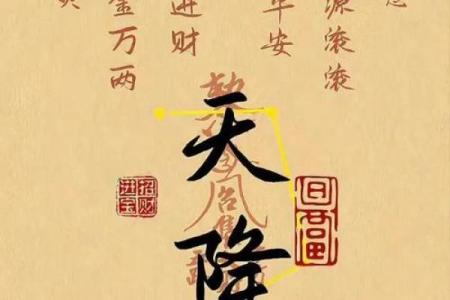 源滚滚
平安
进财
金万两
天降
招财
进宝